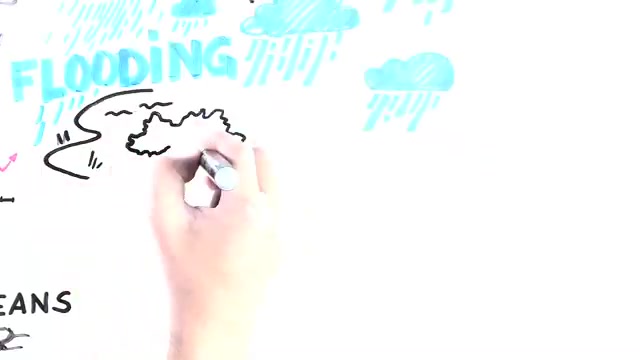 FLOODiNG
EANS